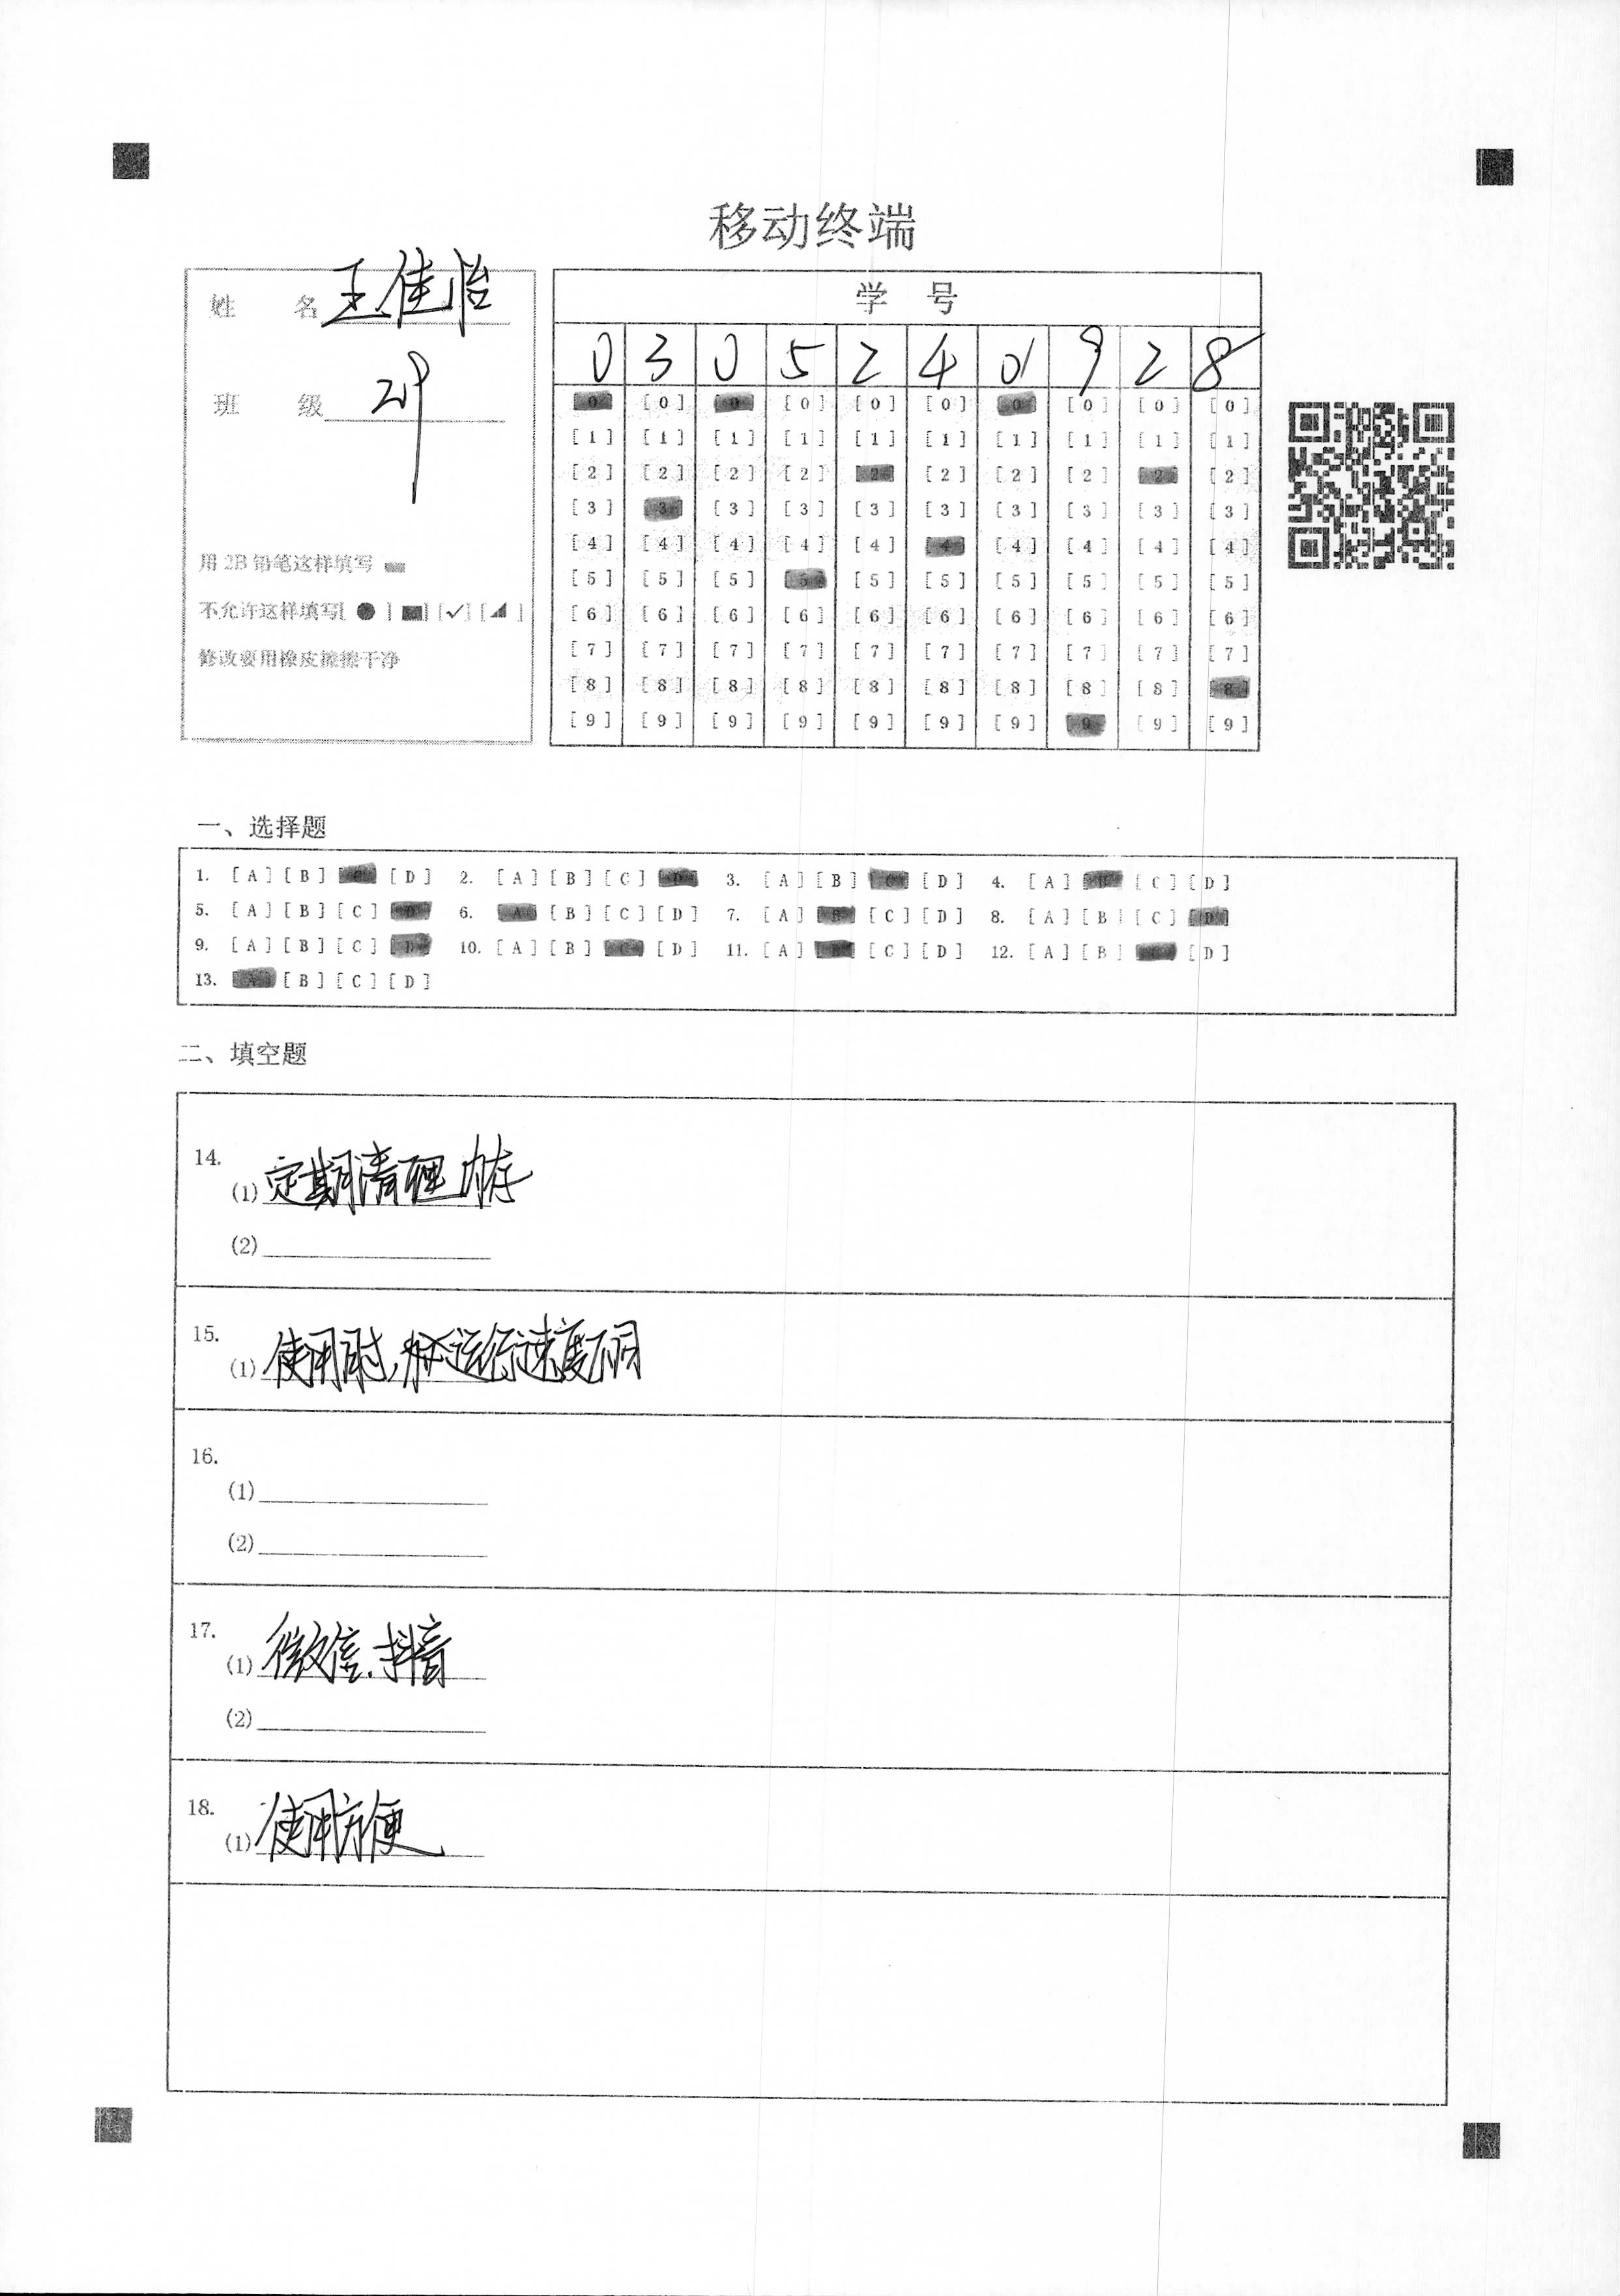 移动终端
姓 名 王佳怡
班 级 29
用 2B 铅笔这样填写
不允许这样填写[ ● ] [■] [✓] [◢ ]
修改要用橡皮擦擦干净
学 号
0 3 0 5 2 4 0 9 2 8
[0] [0] [0] [0] [0] [0] [0] [0] [0] [0]
[1] [1] [1] [1] [1] [1] [1] [1] [1] [1]
[2] [2] [2] [2] [2] [2] [2] [2] [2] [2]
[3] [3] [3] [3] [3] [3] [3] [3] [3] [3]
[4] [4] [4] [4] [4] [4] [4] [4] [4] [4]
[5] [5] [5] [5] [5] [5] [5] [5] [5] [5]
[6] [6] [6] [6] [6] [6] [6] [6] [6] [6]
[7] [7] [7] [7] [7] [7] [7] [7] [7] [7]
[8] [8] [8] [8] [8] [8] [8] [8] [8] [8]
[9] [9] [9] [9] [9] [9] [9] [9] [9] [9]
一、选择题
1. [A] [B] [C] [D] 2. [A] [B] [C] [D] 3. [A] [B] [C] [D] 4. [A] [B] [C] [D]
5. [A] [B] [C] [D] 6. [A] [B] [C] [D] 7. [A] [B] [C] [D] 8. [A] [B] [C] [D]
9. [A] [B] [C] [D] 10. [A] [B] [C] [D] 11. [A] [B] [C] [D] 12. [A] [B] [C] [D]
13. [A] [B] [C] [D]
二、填空题
14.
(1) 定期清理内存
(2)
15.
(1) 使用时,运行速度不同
16.
(1)
(2)
17.
(1) 微信.抖音
(2)
18.
(1) 使用方便